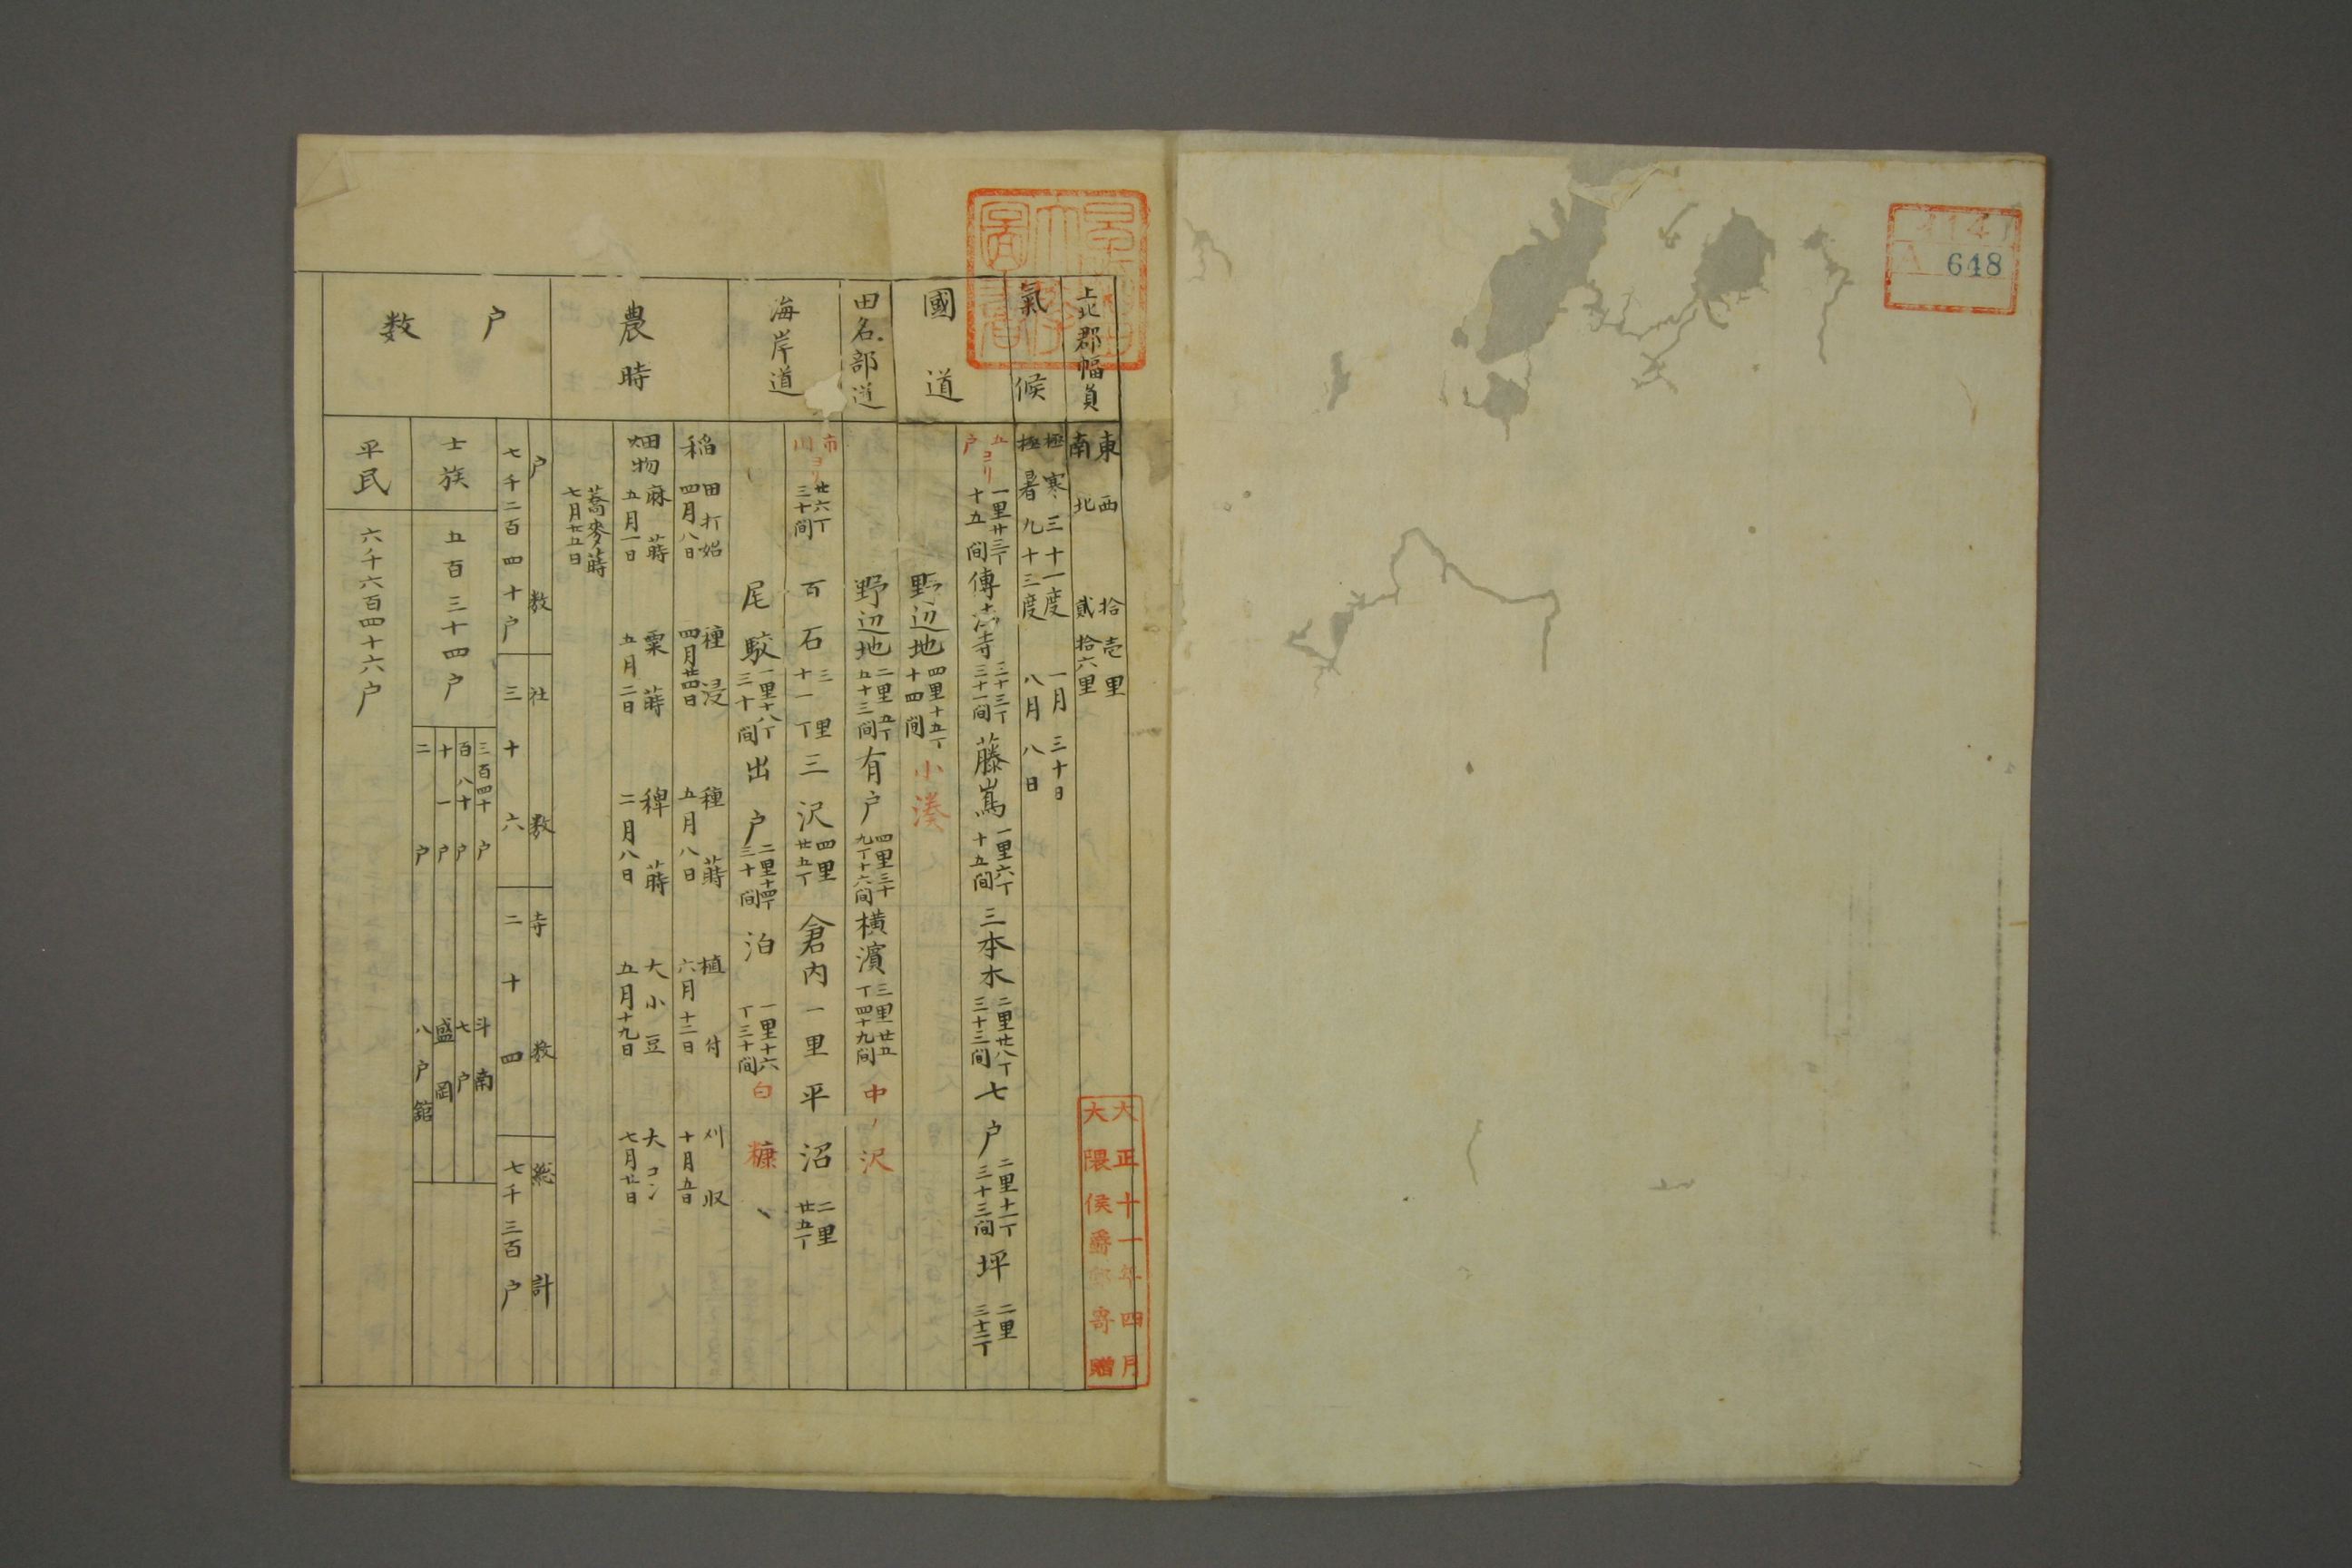 648
上北郡幅員
東西 拾壱里
南北 貳拾六里
氣候
極寒 三十一度 一月三十日
極暑 九十三度 八月八日
國道
五戸ヨリ 一里廿三丁十五間 傳法寺 三十三丁三十一間 藤嶌 一里六丁十五間 三本木 二里廿八丁三十三間 七戸 二里十一丁三十三間 坪 二里三十二丁
野辺地 四里十五丁十四間 小湊
田名部道
野辺地 二里五丁五十三間 有戸 四里三十九丁十六間 横濱 三里廿五丁四十九間 中ノ沢
海岸道
市川ヨリ 廿六丁三十間 百石 三里十一丁 三沢 四里廿五丁 倉内 一里 平沼 二里廿五丁
尾駮 一里十八丁三十間 出戸 二里十四丁三十間 泊 一里十六丁三十間 白糠
農時
稲 田打始 四月八日 種浸 四月廿四日 種蒔 五月八日 植付 六月十二日 刈収 十月五日
畑物 麻蒔 五月一日 粟蒔 五月二日 稗蒔 二月八日 大小豆 五月十九日 大コン 七月廿日
蕎麥蒔 七月廿五日
戸数
戸数 社数 寺数 総計
七千二百四十戸 三十六 二十四 七千三百戸
士族 五百三十四戸
三百四十戸 斗南
百八十戸 七戸
十一戸 盛岡
二戸 八戸舘
平民 六千六百四十六戸
大正十一年四月
大隈侯爵家寄贈